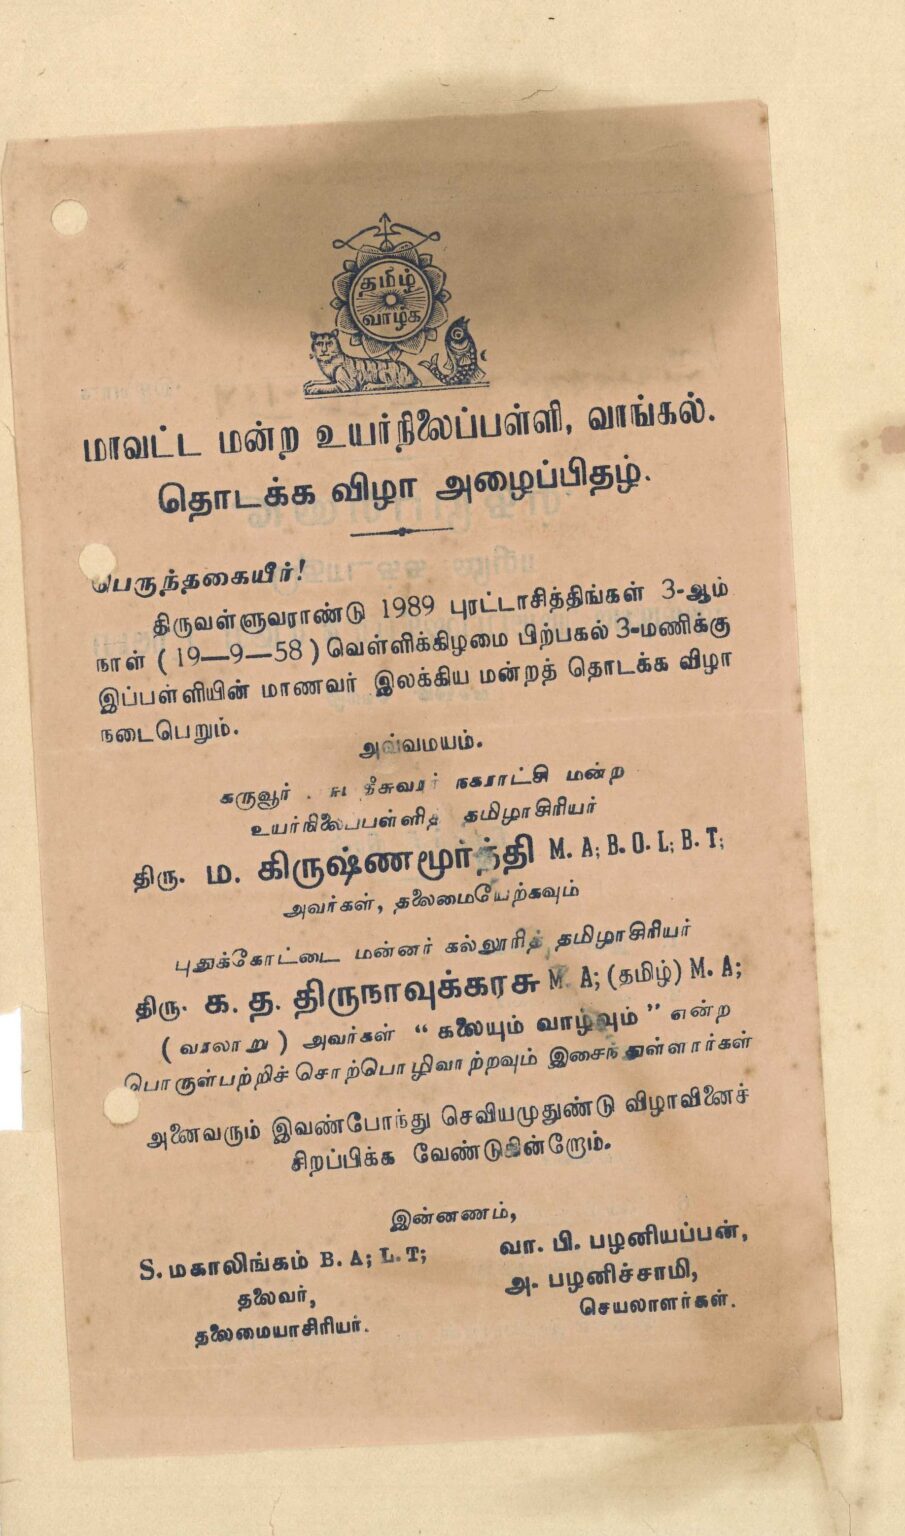 தமிழ்
வாழ்க
மாவட்ட மன்ற உயர்நிலைப்பள்ளி, வாங்கல்.
தொடக்க விழா அழைப்பிதழ்.
பெருந்தகையீர்!
திருவள்ளுவராண்டு 1989 புரட்டாசித்திங்கள் 3-ஆம்
நாள் (19—9—58) வெள்ளிக்கிழமை பிற்பகல் 3-மணிக்கு
இப்பள்ளியின் மாணவர் இலக்கிய மன்றத் தொடக்க விழா
நடைபெறும்.
அவ்வமயம்.
கருவூர் நகராட்சி மன்ற
உயர்நிலைபபள்ளித் தமிழாசிரியர்
திரு. ம. கிருஷ்ணமூர்த்தி M. A; B. O. L; B. T;
அவர்கள், தலைமையேற்கவும்
புதுக்கோட்டை மன்னர் கல்லூரித் தமிழாசிரியர்
திரு. க. த. திருநாவுக்கரசு M. A; (தமிழ்) M. A;
(வரலாறு) அவர்கள் “கலையும் வாழ்வும்” என்ற
பொருள்பற்றிச் சொற்பொழிவாற்றவும் இசைந்துள்ளார்கள்
அனைவரும் இவண்போந்து செவியமுதுண்டு விழாவினைச்
சிறப்பிக்க வேண்டுகின்றோம்.
இன்னணம்,
S. மகாலிங்கம் B. A; L. T;
தலைவர்,
தலைமையாசிரியர்.
வா. பி. பழனியப்பன்,
அ. பழனிச்சாமி,
செயலாளர்கள்.